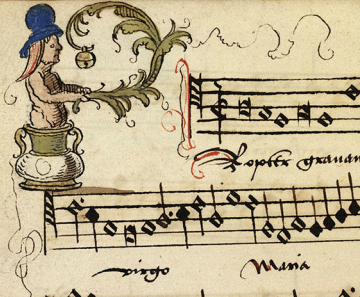 PRopter gravam
virgo Maria